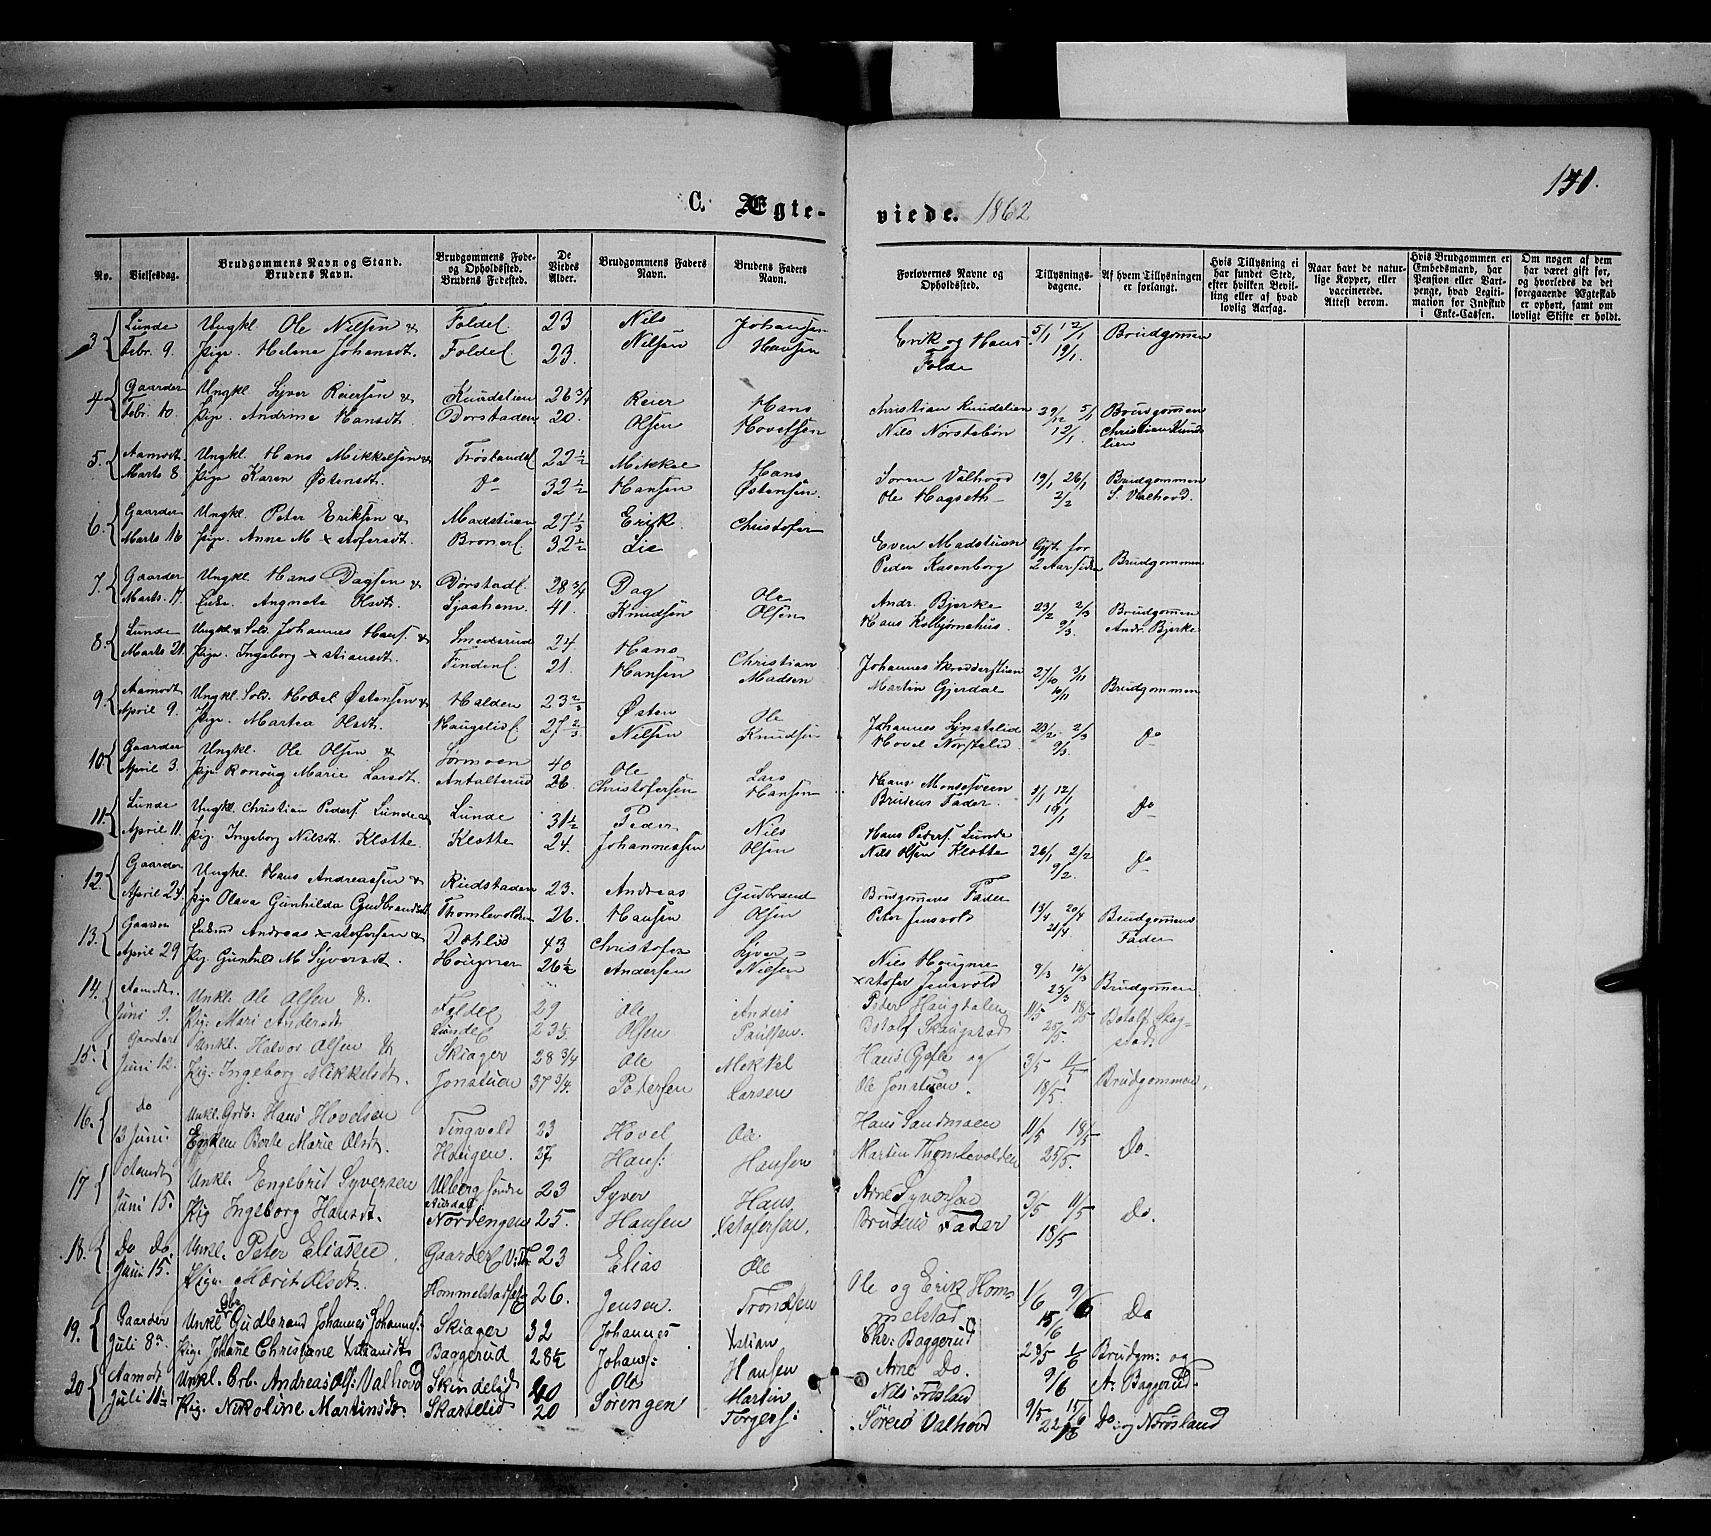 141.
C. Ægte-viede. 1862
No.
Vielsesdag.
Brudgommens Navn og Stand.
Brudens Navn.
Brudgommens Føde- og Opholdssted.
Brudens Fødested.
De Viedes Alder.
Brudgommens Faders Navn.
Brudens Faders Navn.
Forlovernes Navne og Opholdssted.
Tillysningsdagene.
Af hvem Tillysningen er forlangt.
Hvis Tillysning ei har fundet Sted, efter hvilken Bevilling eller af hvad lovlig Aarsag.
Naar havt de naturlige Kopper, eller vaccinerede. Attest derom.
Hvis Brudgommen er Embedsmand, har Pension eller Vartpenge, hvad Legitimation for Indskud i Enke-Cassen.
Om nogen af dem har været gift før, og hvorledes da det foregaaende Ægteskab er ophørt, samt om lovligt Skifte er holdt.
3 Lunde Ungkl. Ole Nilsen & Foldel 23 Nils Johansen Erik og Hans 5/1 12/1 Brudgommen
Febr. 9. Pige. Helene Johansdt. Foldel 23. Nilsen Hansen Folde 19/1.
4 Gaarder Ungkl. Syver Reiersen & Knudslien 26 3/4 Reier Hans Christian Knudslien 29/12 5/1 Brudgommen
Febr. 10. Pige. Andrine Hansdt. Dorstaden 20. Olsen Hovelsen Nils Nørstebøn 12/1. Christian Knudslien
5. Aamodt Ungkl. Hans Mikkelsen & Frøslandsl 22 1/2 Mikkel Hans Soren Valhovd 19/1 26/1 Brudgommen
Marts 8 Pige Karen Østensdt. Do 32 1/2 Hansen Østensen. Ole Hagseth 2/2 S. Valhovd.
6. Gaarder Ungkl. Peter Eriksen & Madstuen 27 1/3 Erik Christofer Even Madstuen Gyt for
Marts 16 Pige. Anne M xstofersdt. Bronerl. 32 1/2 Lie Peder Kasenborg 2 Aar siden Brudgommen
7. Gaarder Ungkl. Hans Dagsen & Dorstadl 28 3/4 Dag Ole Andr. Bjerke 23/2 2/3 Brudgommen
Marts. 17. Enke. Angnete Olsdt. Sjaahem. 41. Knudsen Olsen Hans Kolbjørnshus. 9/3. Andr. Bjerke
8. Lunde Ungkl. Sold. Johannes Hans. & Smedsrud 24 Hans Christian Johannes Skrædderstuen 27/10 3/11 Brudgommen
Marts 21. Pige. Ingeborg xstiansdt. Findenl. 21. Hansen Madsen Martin Gjerdal 10/11
9. Aamodt Ungkl. Sold. Hovel Østensen & Halden 23 2/3 Østen Ole Johannes Lynstelid 23/2. 2/3 Do
April 9. Pige. Martea Olsdt. Haugelidl. 27 2/3 Nilsen Knudsen Hovel Norstelid 9/3.
10. Gaarder Ungkl. Ole Olsen & Sormoen 40 Ole Lars Hans Mondesveen 5/1 12/1
April 3. Pige Ronoug Marie Larsdt. Antalterud 26. Christofersen Hansen Brudens Fader. 19/1 Do
11. Lunde Ungkl. Christian Peders. Lunde & Lunde 31 1/2 Peder Nils Hans Peders. Lunde
April 11. Pig. Ingeborg Nilsdt. Klotte. Klotte 24. Johannessen Olsen Nils Olsen Klotte 26/1 2/2 9/2. Do
12. Gaarder Ungkl. Hans Andreassen & Rudstaden 23. Andreas Gudbrand Brudgommens Fader
April 24. Pige Olava Gunhilda Gudbrandsdt. Thomlevolden 26. Hansen Olsen Peter Jensvold 13/4 20/4 21/4 Brudgommens Fader
13. Gaarder Enkem Andreas xstofersen & Dahlid 43 Christofer Syver Nils Hougner 9/3 16/3
April 29 Pig. Gunhild M. Syversdt. Hougner 26 1/2 Andersen Nilsen xstofer Jensvold 23/3 Brudgommen
14. Aamodt. Unkl. Ole Olsen & Foldel 29 Ole Anders Peter Haugdalen 11/5 18/5 Botolf Skagstad.
Juni 9. Pig. Mari Andersdt Lundel 23 1/2 Olsen Paulsen. Botolf Skaugstad 25/5.
15. Gaarder Unkl. Halvor Olsen & Skiager 28 3/4 Ole Mikkel Hans Gjefle og 3/5 11/5
Juni 12. Pig. Ingeborg Mikkelsdt. Jonstuen 37 3/4. Petersen Larsen Ole Jonstuen. 18/5. Brudgommen.
16. do Unkl. Gdb: Hans Hovelsen Tingvold 23 Hovel Ole Hans Sandmoen 11/5 18/5
13 Juni. Enken Borte Marie Olsdt. Haugen. 27 Hans: Hansen Martin Thomlevolden 25/5. Do.
17 Aamodt Unkl. Engebrit Syversen Ulberg søndre Aursdal 23 Syver Hans Arne Syversen 3/5 11/5
Juni 15. Pig. Ingeborg Hansdt. Nordengen 25. Hansen Xstofersen. Brudens Fader 18/5 Do.
18. Do Do. Unkl. Peter Eliassen. Gaarderl. V: Th: 23 Elias Ole Ole og Erik Hom- 1/6 9/6
Juni 15. Pige. Marit Olsdt. Hommelstad 26. Jensen. Trondsen melstad 15/6 Do
19. Gaarder Unkl. Gbr. Gudbrand Johannes Johannes: Skiager 32 Johannes Xstian Chr: Baggerud 25/5 1/6 Brudgm: og
Juli 8de Pig. Johane Christiane Xstiansdt. Baggerud 28 1/2 Johans: Hansen Arne Do. 9/6 A. Baggerud.
20 Aamodt Unkl. Grb. Andreas Ols: Valhovd Skindelid 40 Ole Martin Nils Frøsland 9/5 15/6
Juli 11te Pig. Nikoline Martinsdt. Skartelid 20 Sørengen Torgers: Søren Valhovd 22/6 Do: og N. Frøsland